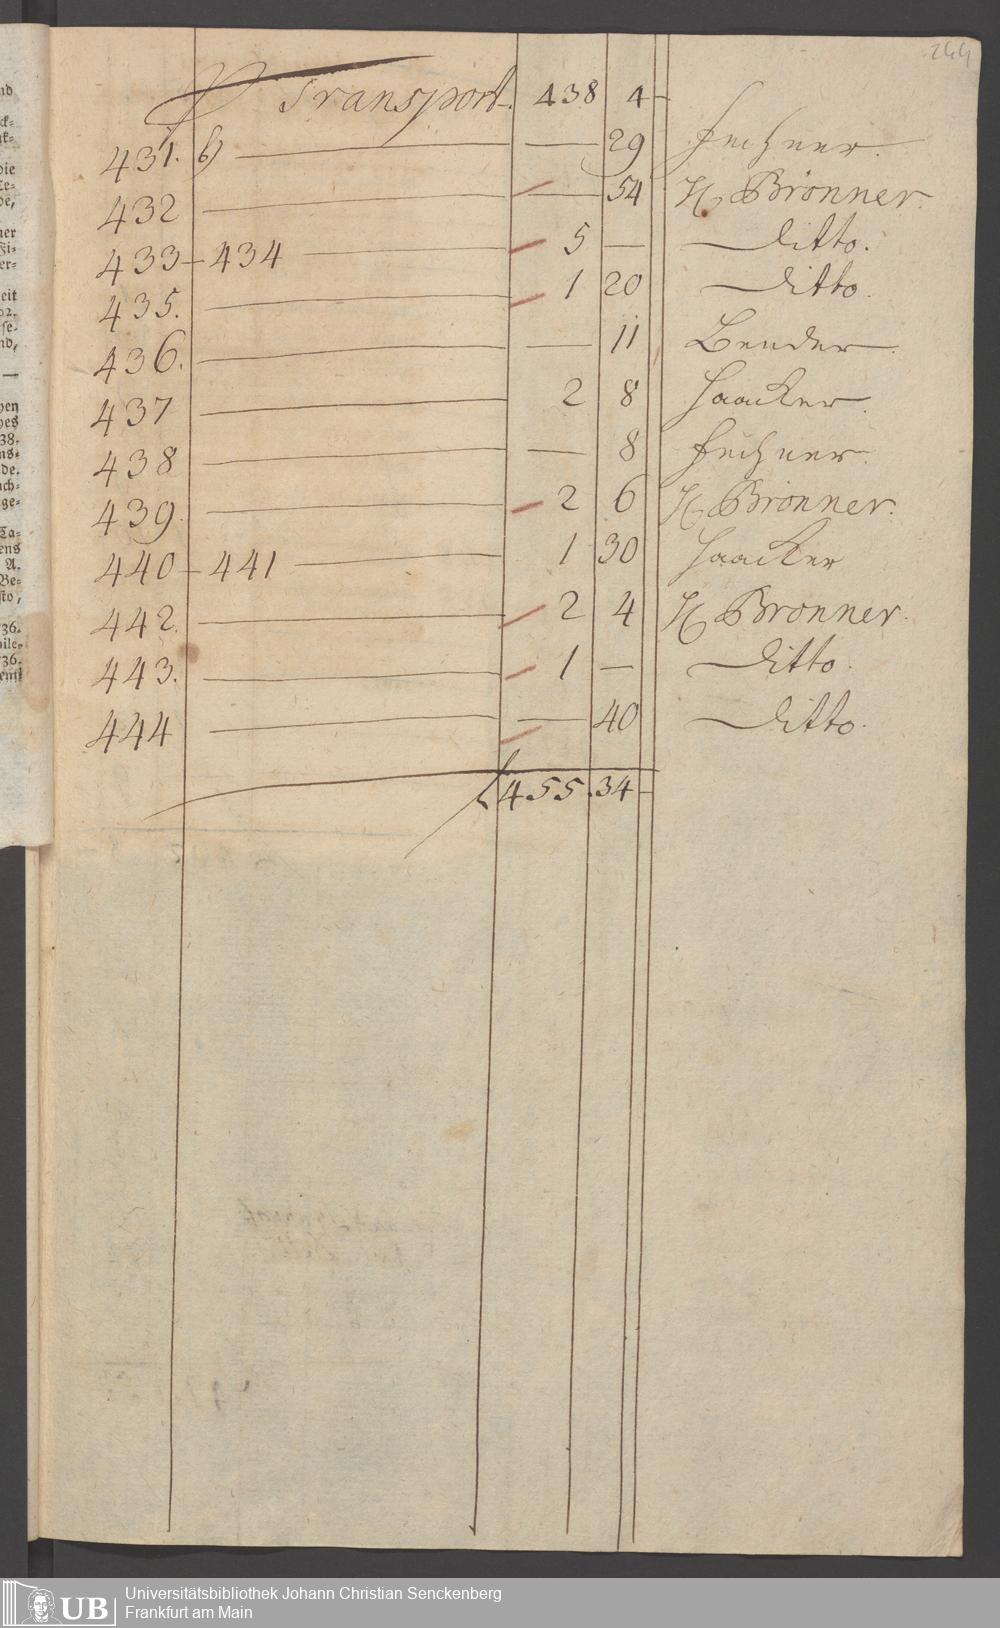 244
P Transport. 438 4 -
431. b) — — 29 Fechner.
432 — — 54 H. Brönner.
433 - 434 — 5 — Ditto.
435. — 1 20 Ditto.
436. — — 11 Bender.
437 — 2 8 Haacker.
438 — — 8 Fechner.
439. — 2 6 H. Brönner.
440 - 441 — 1 30 Haacker
442. — 2 4 H. Bronner.
443. — 1 — Ditto.
444 — — 40 Ditto.
f 455. 34 -
UB
Universitätsbibliothek Johann Christian Senckenberg
Frankfurt am Main